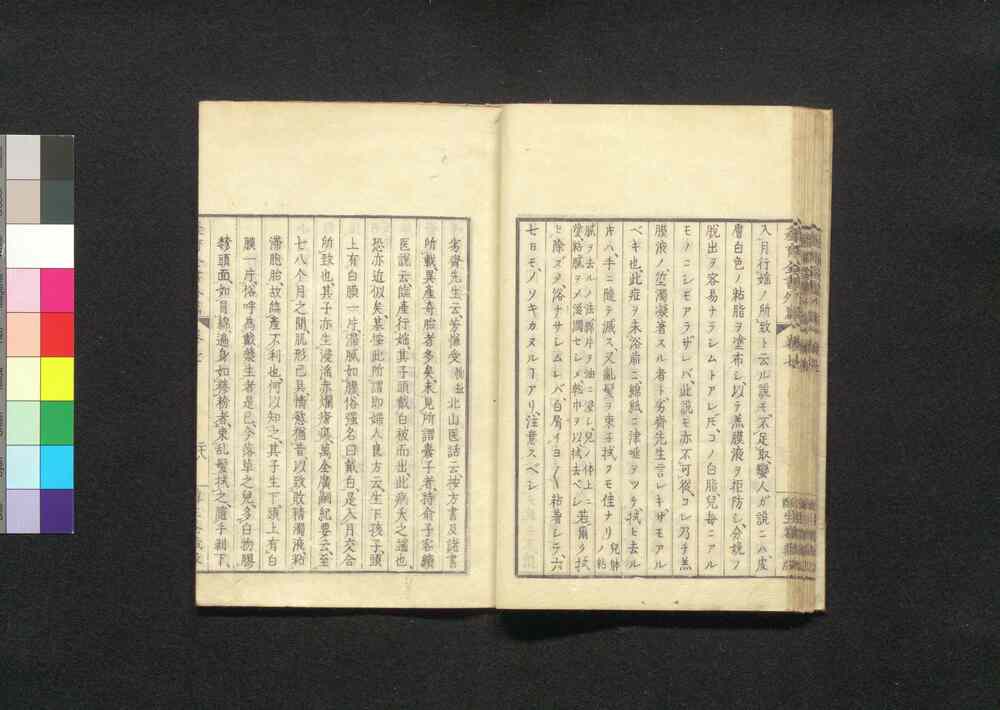 入月行媱ノ所致ト云ル説モ不足取、蠻人ガ説ニハ、皮
層白色ノ粘脂ヲ塗布シ、以テ羔膜液ヲ拒防シ、分娩ノ
脱出ヲ容易ナラシムトアレドモ、コノ白脂兒毎ニアル
モノニシモアラザレバ、此説モ亦不可從、コレ乃チ羔
膜液ノ溷濁凝著スル者ト劣齋先生言レキ、ザモアル
ベキ也、此症ヲ未浴前ニ、綿紙ニ津唾ヲツケ拭ヒ去ル
片ハ、手ニ隨テ滅ス、又亂髪ヲ束子拭フモ佳ナリ
兒體ノ粘
膩ヲ去ルノ法、縣片ヲ油ニ浸シ、兒ノ体上ニ
塗、粘膩ヲメ滋潤セシメ、乾巾ヲ以拭去ベシ、若爾ク拭
ヒ除ズメ浴ナサシムレバ、白屑イヨ〱粘著シテ、六
七日モノソキカヌルコアリ、注意スベシ
劣齋先生云、芳僱受
北山医話云、按方書及諸書
所載、異産奇胎者多矣、未見所謂素子者、持俞子容續
医説云、臨産行媱、其子頭戴白被而出、此病夭之端也、
恐亦近似矣、某按此所謂即婦人良方云、生下孩子、頭
上有白膜一片、滞膩如膠、俗強名曰戴白、是入月交合
所致也、其子亦生浸滛赤爛瘡瘍、萬全廣嗣紀要云、至
七八个月之間、肌形已具、情慾猶昔、以致敗精濁液、粘
滞胞胎、故臨産不利也、何以知之、其子生下、頭上有白
膜一片、俗呼爲戴孝生者是已、今落草之兒、多白物膠
頭面、如冒綿、遍身如糝粉者、束乱髪拭之、隨手剥下、